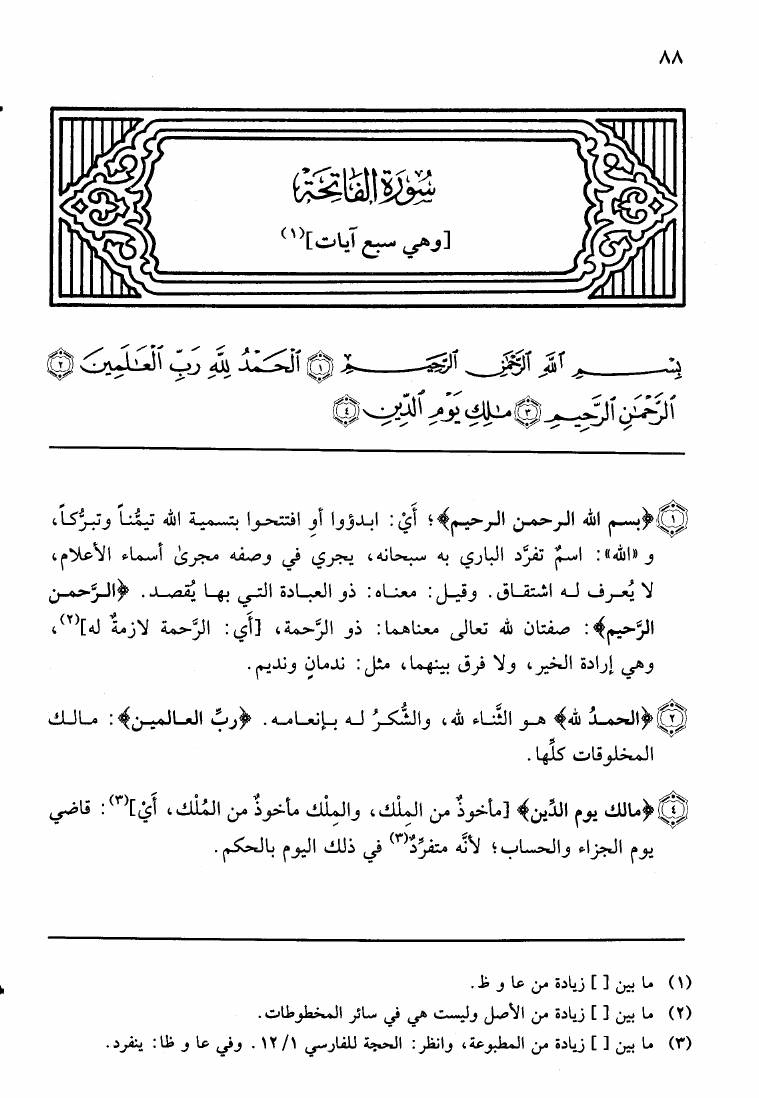 ٨٨
سُورَةُ الفَاتِحَةِ
[وهي سبع آيات](١)
بِسْمِ ٱللَّهِ ٱلرَّحْمَٰنِ ٱلرَّحِيمِ ١ ٱلْحَمْدُ لِلَّهِ رَبِّ ٱلْعَٰلَمِينَ ٢
ٱلرَّحْمَٰنِ ٱلرَّحِيمِ ٣ مَٰلِكِ يَوْمِ ٱلدِّينِ ٤
١ ﴿بسم الله الرحمن الرحيم﴾؛ أيْ: ابدؤوا أو افتتحوا بتسمية الله تيمُّناً وتبرُّكاً،
و «الله»: اسمٌ تفرَّد الباري به سبحانه، يجري في وصفه مجرىٰ أسماء الأعلام،
لا يُعرف له اشتقاق. وقيل: معناه: ذو العبادة التي بها يُقصد. ﴿الرَّحمن
الرَّحيم﴾: صفتان لله تعالى معناهما: ذو الرَّحمة، [أي: الرَّحمة لازمةٌ له](٢)،
وهي إرادة الخير، ولا فرق بينهما، مثل: ندمانٍ ونديم.
٢ ﴿الحمدُ لله﴾ هو الثَّناء لله، والشُّكرُ له بإنعامه. ﴿ربِّ العالمين﴾: مالك
المخلوقات كلِّها.
٤ ﴿مالك يوم الدِّين﴾ [مأخوذٌ من المِلْك، والمِلْك مأخوذٌ من المُلْك، أيْ](٣): قاضي
يوم الجزاء والحساب؛ لأنَّه متفرِّدٌ(٣) في ذلك اليوم بالحكم.
(١) ما بين [ ] زيادة من عا و ظ.
(٢) ما بين [ ] زيادة من الأصل وليست هي في سائر المخطوطات.
(٣) ما بين [ ] زيادة من المطبوعة، وانظر: الحجة للفارسي ١/ ١٢. وفي عا و ظا: ينفرد.